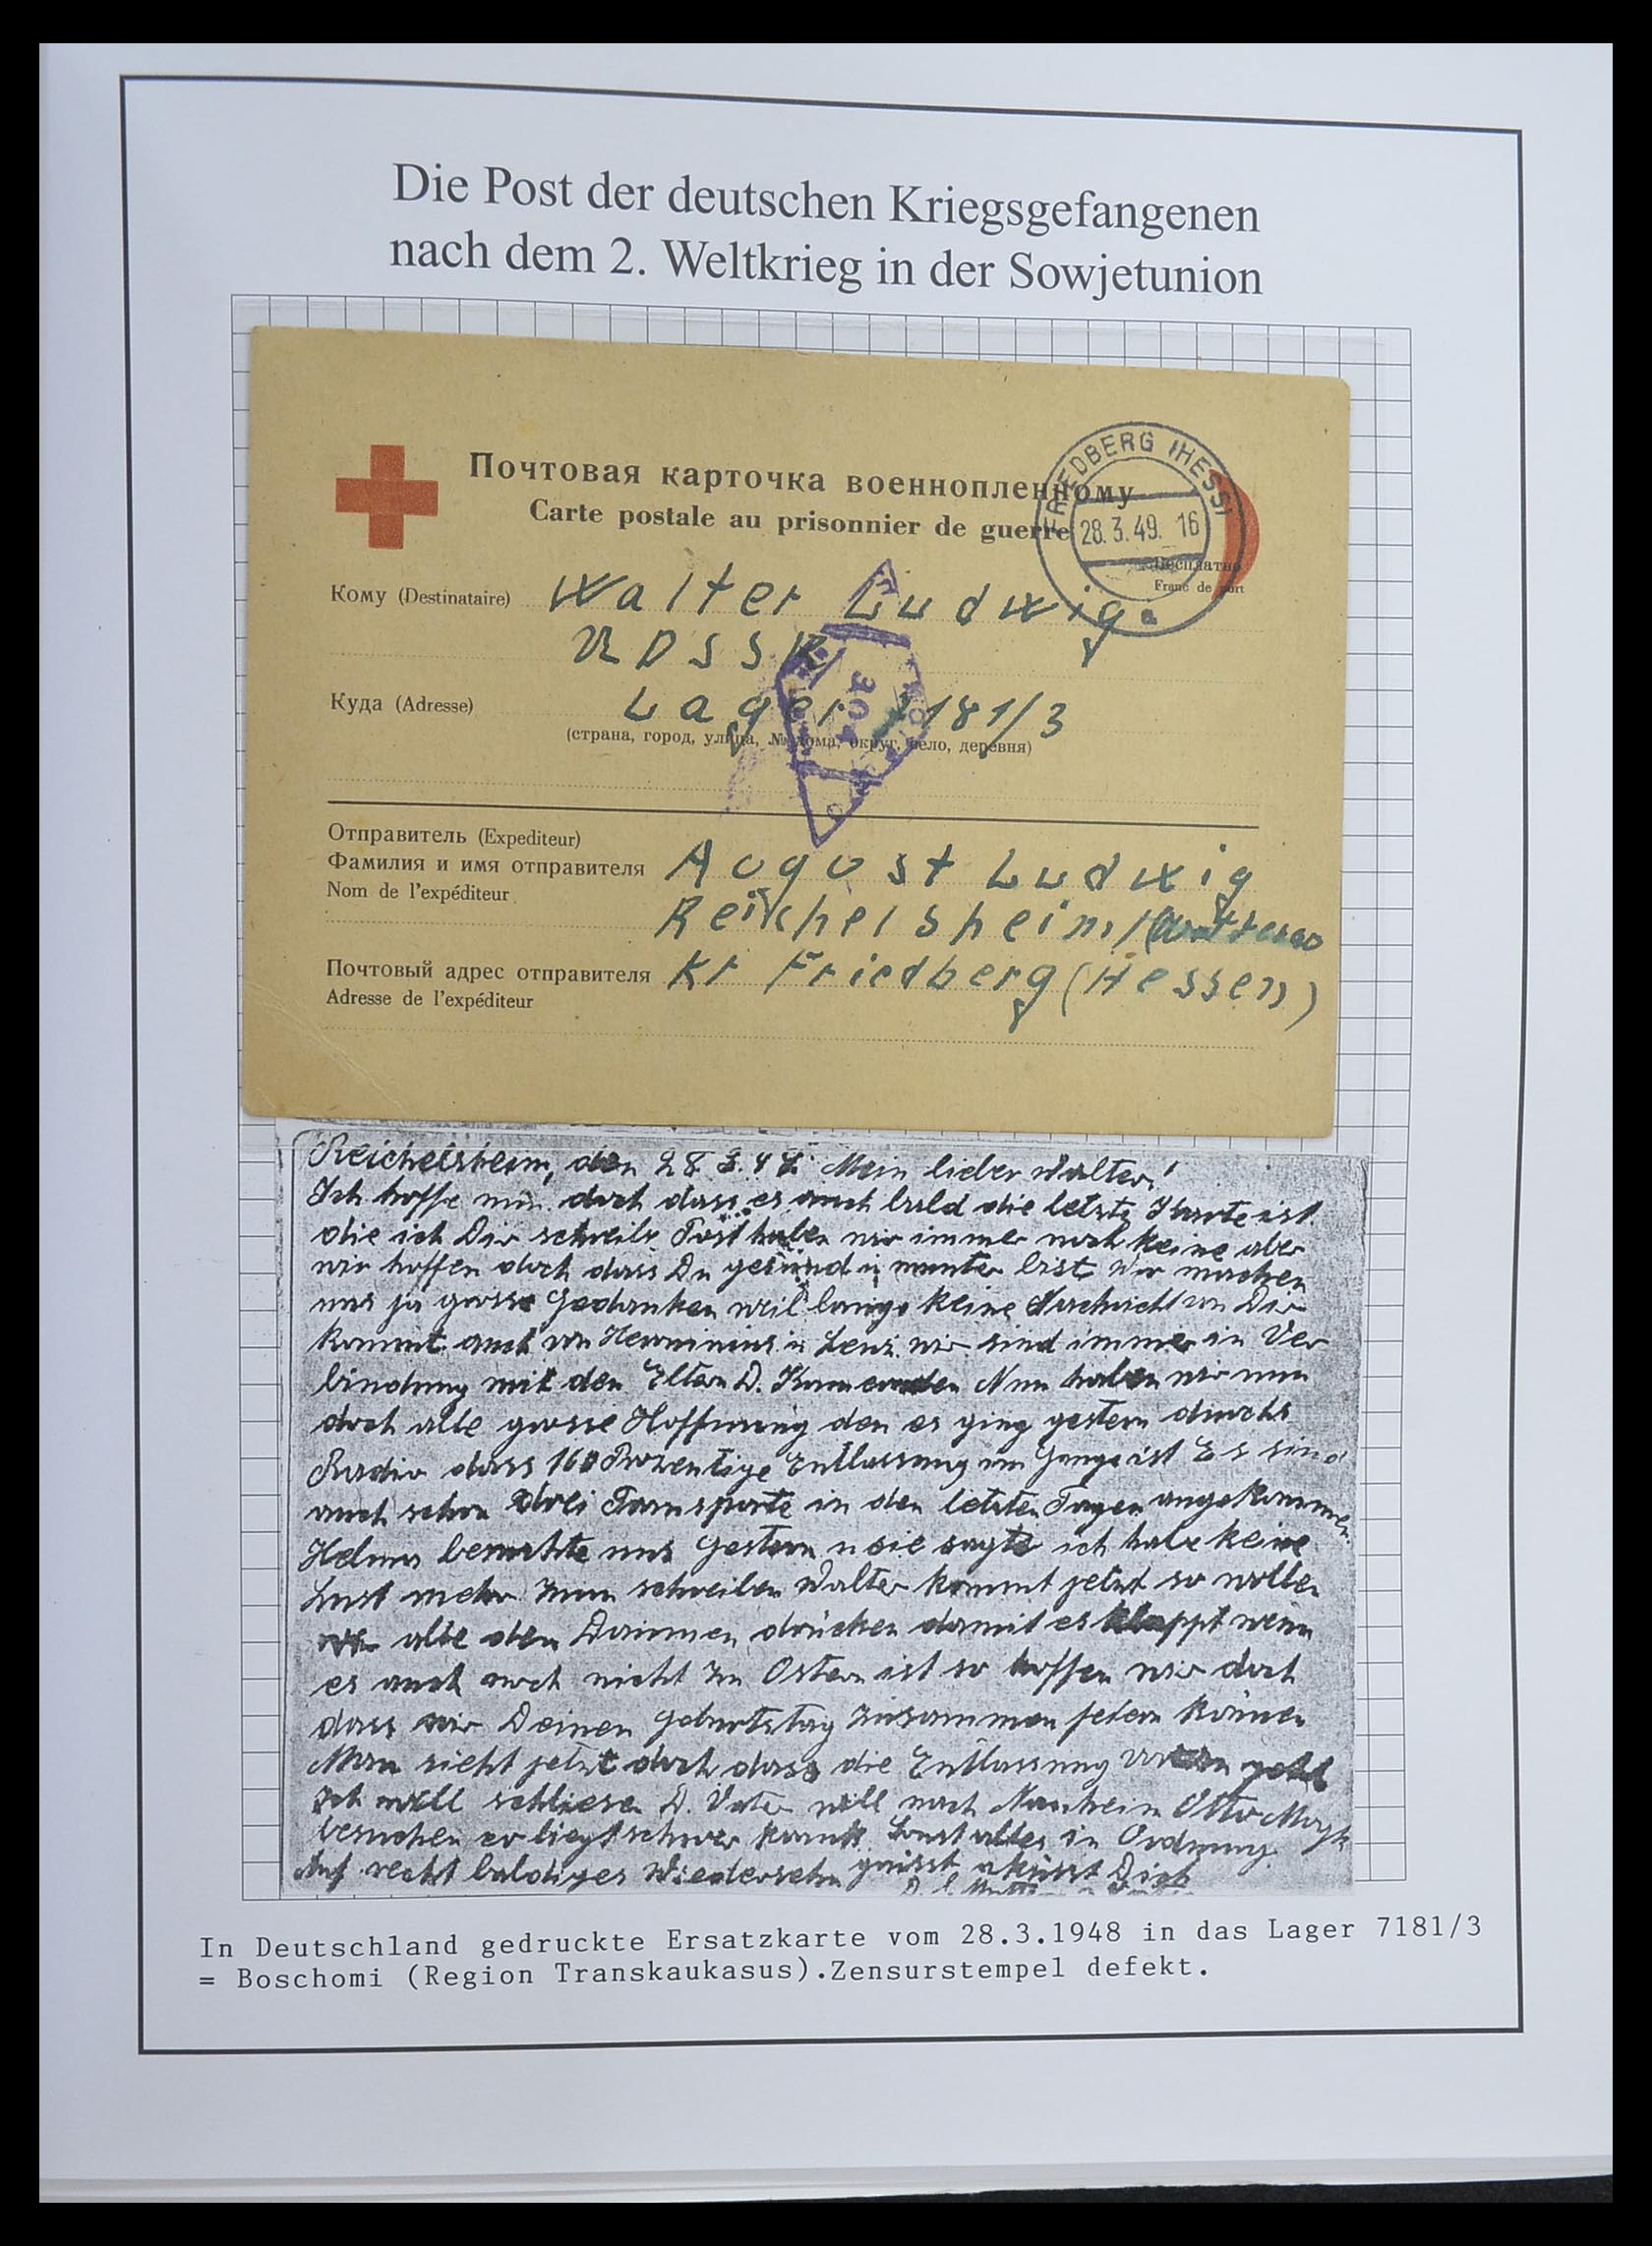 Die Post der deutschen Kriegsgefangenen
nach dem 2. Weltkrieg in der Sowjetunion
Почтовая карточка военнопленному
Carte postale au prisonnier de guerre
FRIEDBERG (HESS)
28.3.49. 16
a
Бесплатно
Franc de port
Кому (Destinataire) Walter Ludwig
UDSSR
Куда (Adresse) Lager 7181/3
(страна, город, улица, № дома, округ, село, деревня)
304
Отправитель (Expediteur)
Фамилия и имя отправителя August Ludwig
Nom de l'expéditeur
Reichelsheim/
Почтовый адрес отправителя Kr Friedberg (Hessen)
Adresse de l'expéditeur
Reichelsheim, den 28.3. Mein lieber Walter!
Ich hoffe nun doch dass es auch bald die letzte Karte ist
die ich Dir schreibe Post haben wir immer noch keine aber
wir hoffen doch dass Du gesund u munter bist Wir machen
uns ja grosse Gedanken weil lange keine Nachricht von Dir
kommt auch von u Lenz wir sind immer in Ver
bindung mit den Eltern D. Kameraden Nun haben wir nun
doch alle grosse Hoffnung den es ging gestern durchs
Radio dass Prozentige Entlassung im Gange ist Es sind
auch schon drei Transporte in den letzten Tagen angekommen
uns Gestern u sie sagte ich habe keine
Lust mehr zum schreiben Walter kommt jetzt so wollen
wir alle den Daumen drücken damit es klappt wenn
es auch noch nicht zu Ostern ist so hoffen wir doch
dass wir Deinen Geburtstag zusammen feiern können
Man sieht jetzt doch dass die Entlassung geht
Ich will schliesen D. Vater will nach Otto
besuchen er liegt schwer krank Sonst alles in Ordnung
Auf recht baldiges Wiedersehn grüsst u küsst Dich
In Deutschland gedruckte Ersatzkarte vom 28.3.1948 in das Lager 7181/3
= Boschomi (Region Transkaukasus).Zensurstempel defekt.